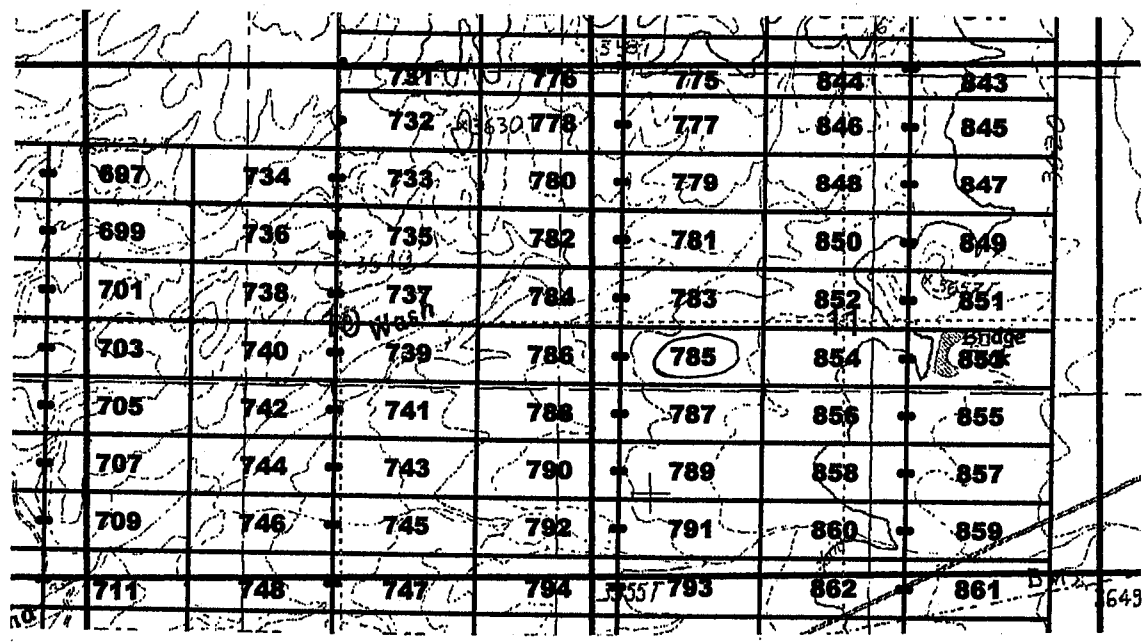 731 776 775 844 843
732 3630 778 777 846 845
697 734 733 780 779 848 847
699 736 735 782 781 850 849
701 738 737 784 783 852 851
Wash 11
703 740 739 786 785 854 853 Bridge
705 742 741 788 787 856 855
707 744 743 790 789 858 857
709 746 745 792 791 860 859
711 748 747 794 3555T 793 862 861 BM
3649